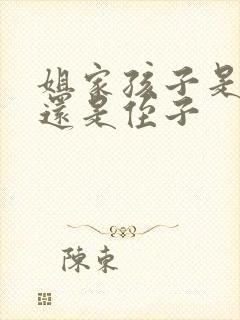 姐家孩子是
還是侄子
陳東